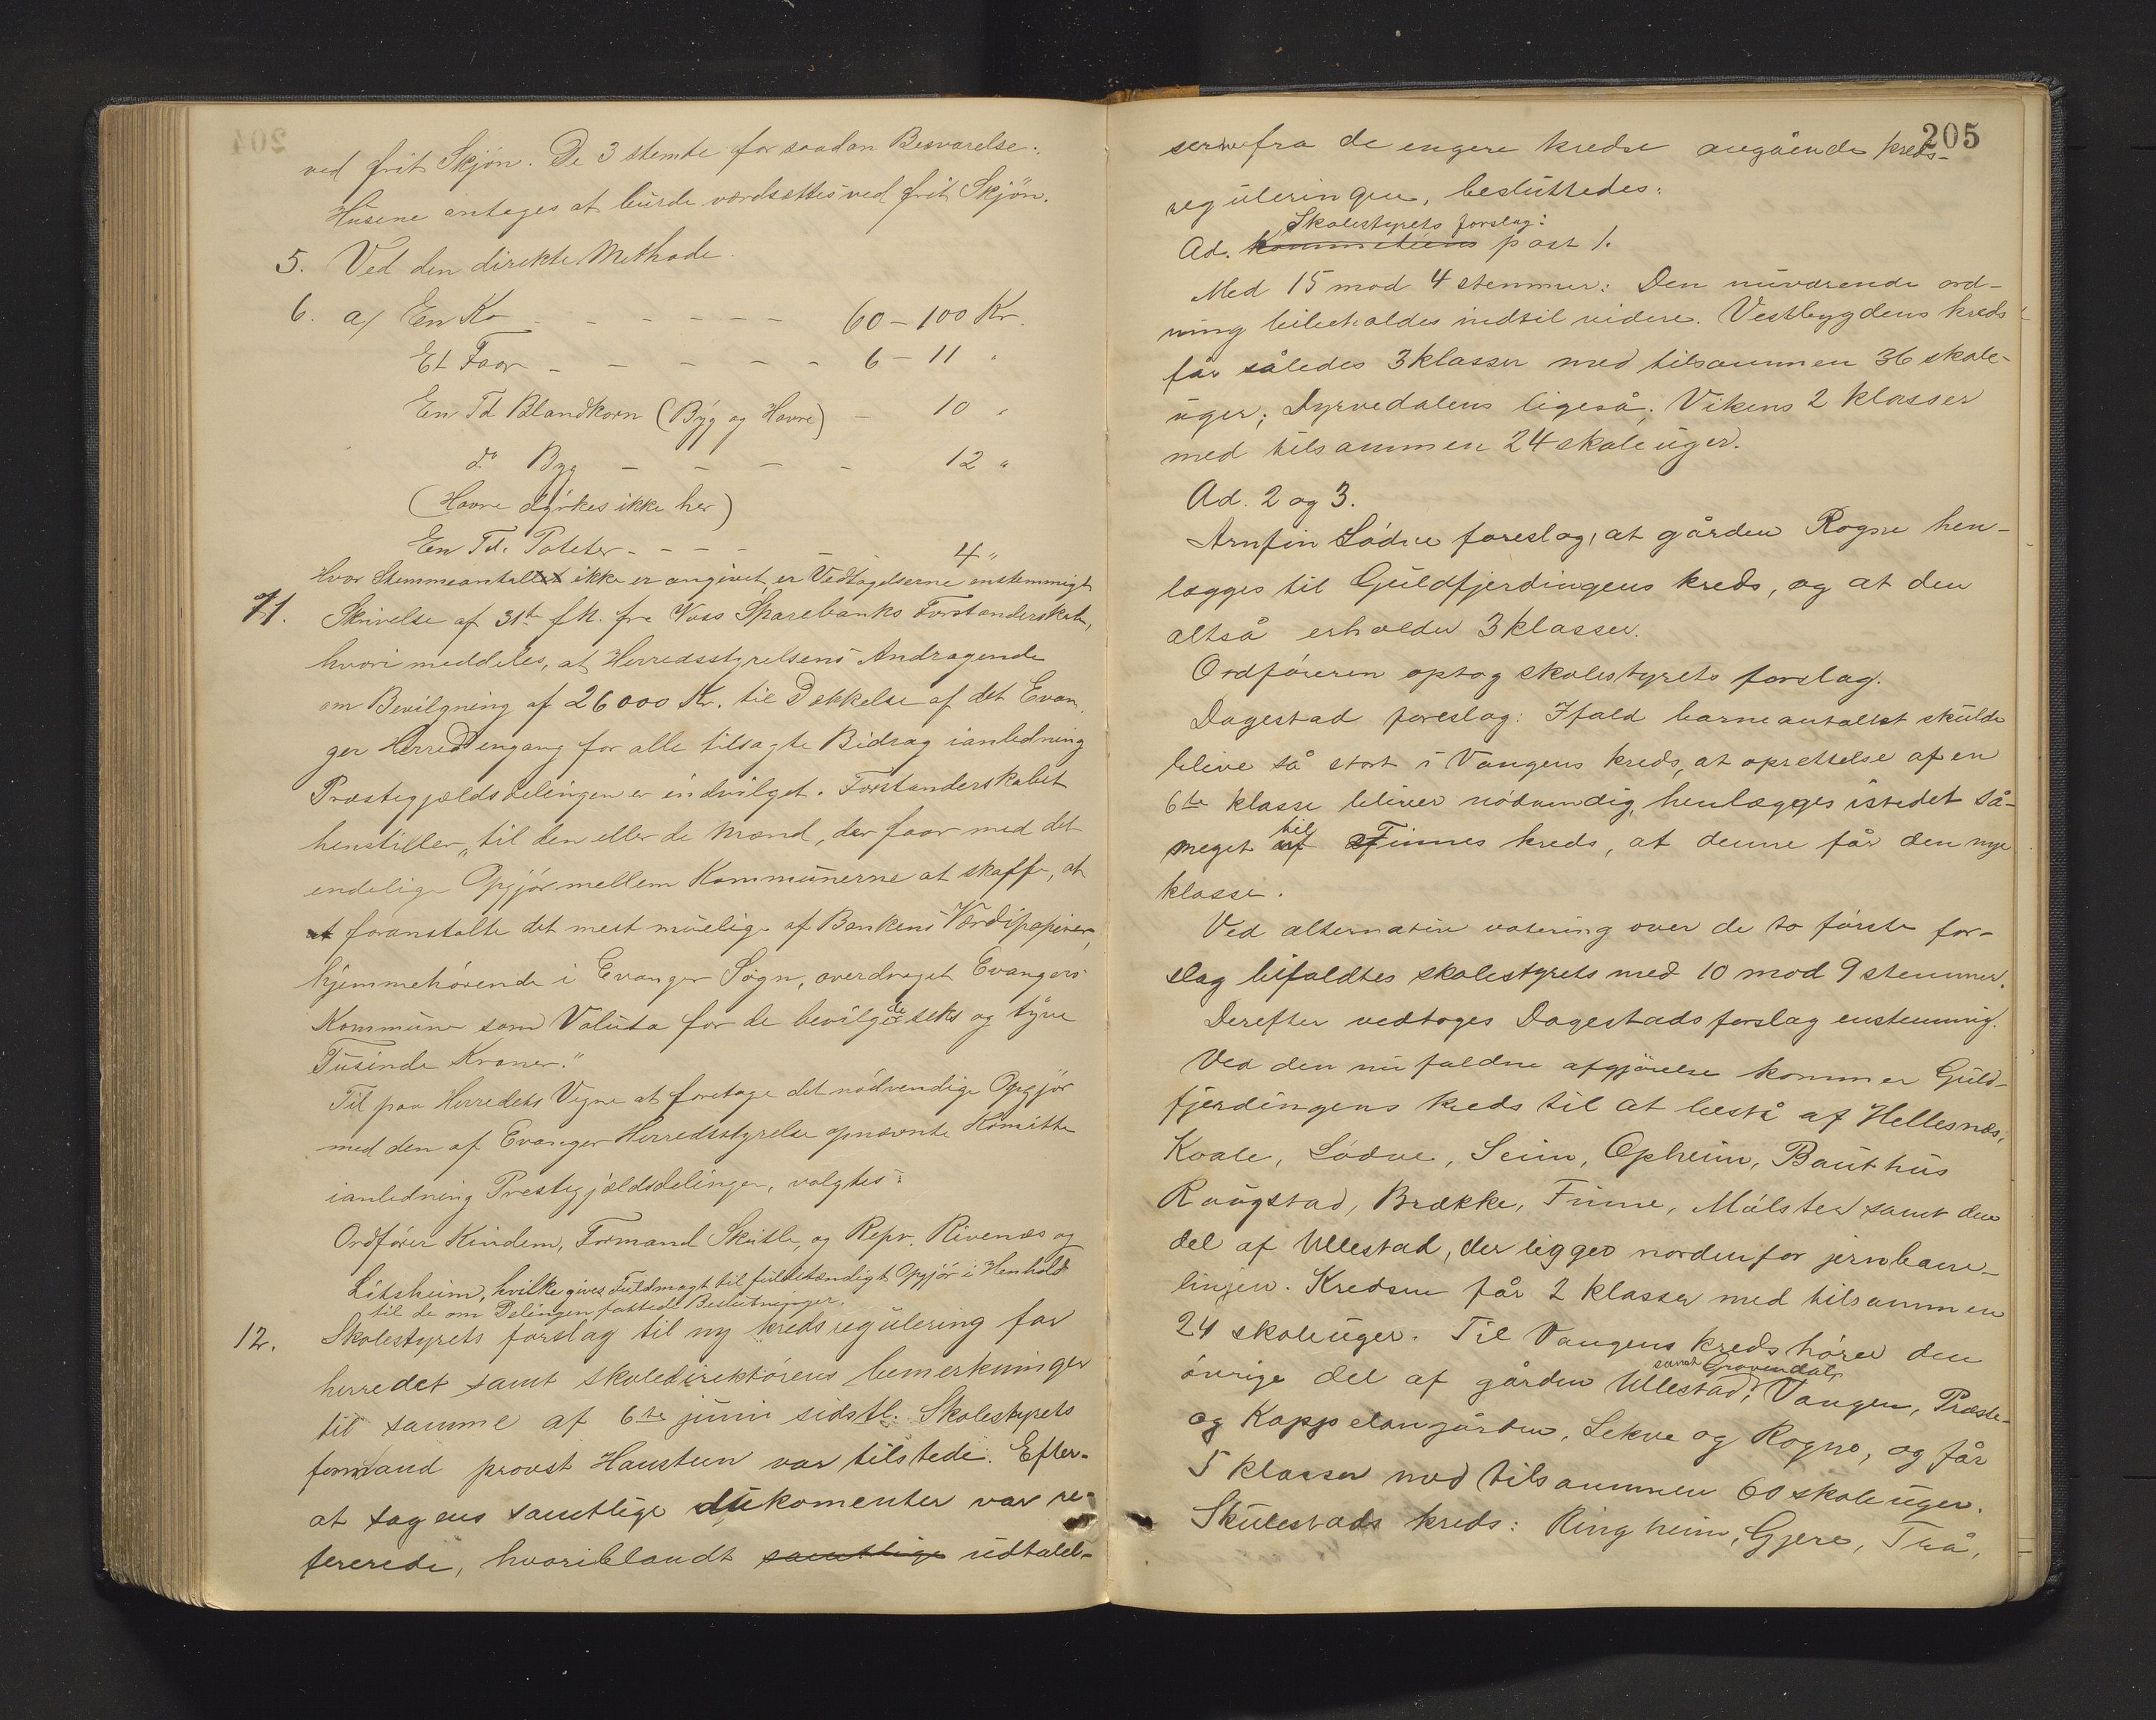 ved frit Skjøn. De 3 stemte for saadan Besvarelse:
Husene antages at burde værdsættes ved frit Skjøn.
5. Ved den direkte Methode.
6. a/ En Ko - - - - - - 60 - 100 Kr.
Et Faar - - - - - - 6 - 11 "
En Td Blandkorn (Byg og Havre) - 10 "
do Byg - - - - 12 "
(Havre dyrkes ikke her)
En Td. Poteter - - - - - - 4 "
Hvor Stemmeantallet ikke er angivet, er Vedtagelserne enstemmigt
11. Skrivelse af 31te f.M. fra Voss Sparebanks Forstanderskab,
hvori meddeles, at Herredsstyrelsens Andragende
om Bevilgning af 26000 Kr. til Dækkelse af det Evan-
ger Herred engang for alle tilsagte Bidrag i anledning
Præstegjældsdelingen er indvilget. Forstanderskabet
henstiller „til den eller de Mænd, der faar med det
endelige Opgjør mellem Kommunerne at skaffe, at
at foranstalte det mest muelige af Bankens Værdipapirer,
hjemmehørende i Evanger Sogn, overdraget Evangers
Kommune som Valuta for de bevilgede seks og tyve
Tusinde Kroner."
Til paa Herredets Vegne at foretage det nødvendige Opgjør
med den af Evanger Herredsstyrelse opnævnte Komitte
ianledning Prestegjældsdelingen, valgtes:
Ordfører Kindem, Formand Skutle, og Repr. Rivenæs og
Litsheim, hvilke gives Fuldmagt til fuldstændigt Opgjør i Henhold
til de om Delingen fattede Beslutninger.
12. Skolestyrets forslag til ny kredsregulering for
herredet samt skoledirektørens bemerkninger
til samme af 6te juni sidstl. Skolestyrets
formand provst Hausteen var tilstede. Efter-
at sagens samtlige dukomenter var re-
fererede, hvoriblandt samtlige udtalel-
205
serne fra de engere kredse angående kreds-
reguleringen, besluttedes:
Skolestyrets forslag:
Ad. kommiteens post 1.
Med 15 mod 4 stemmer: Den nuværende ord-
ning bibeholdes indtil videre. Vestbygdens kreds
får således 3 klasser med tilsammen 36 skole-
uger; Dyrvedalens ligeså; Vikens 2 klasser
med tilsammen 24 skoleuger.
Ad. 2 og 3.
Arnfin Lødve foreslog, at gården Rogne hen-
lægges til Guldfjerdingens kreds, og at den
altså erholder 3 klasser.
Ordføreren optog skolestyrets forslag.
Dagestad foreslog: Ifald barneantallet skulde
blive så stort i Vangens kreds, at oprettelse af en
6te klasse bliver nødvendig, henlægges istedet så-
meget af til Finnes kreds, at denne får den nye
klasse.
Ved alternativ votering over de to første for-
slag bifaldtes skolestyrets med 10 mod 9 stemmer.
Derefter vedtoges Dagestads forslag enstemmig.
Ved den nu faldne afgjørelse kommer Guld-
fjerdingens kreds til at bestå af Hellesnæs,
Kvale, Lødve, Seim, Opheim, Bauthus
Raugstad, Brække, Finne, Mølster samt den
del af Ullestad, der ligger nordenfor jernbane-
linjen. Kredsen får 2 klasser med tilsammen
24 skoleuger. Til Vangens kreds hører den
øvrige del af gården Ullestad, samt Gravendal, Vangen, Præste-
og Kappelangården, Lekve og Rogne, og får
5 klasser med tilsammen 60 skoleuger.
Skulestads kreds: Ringheim, Gjere, Två,